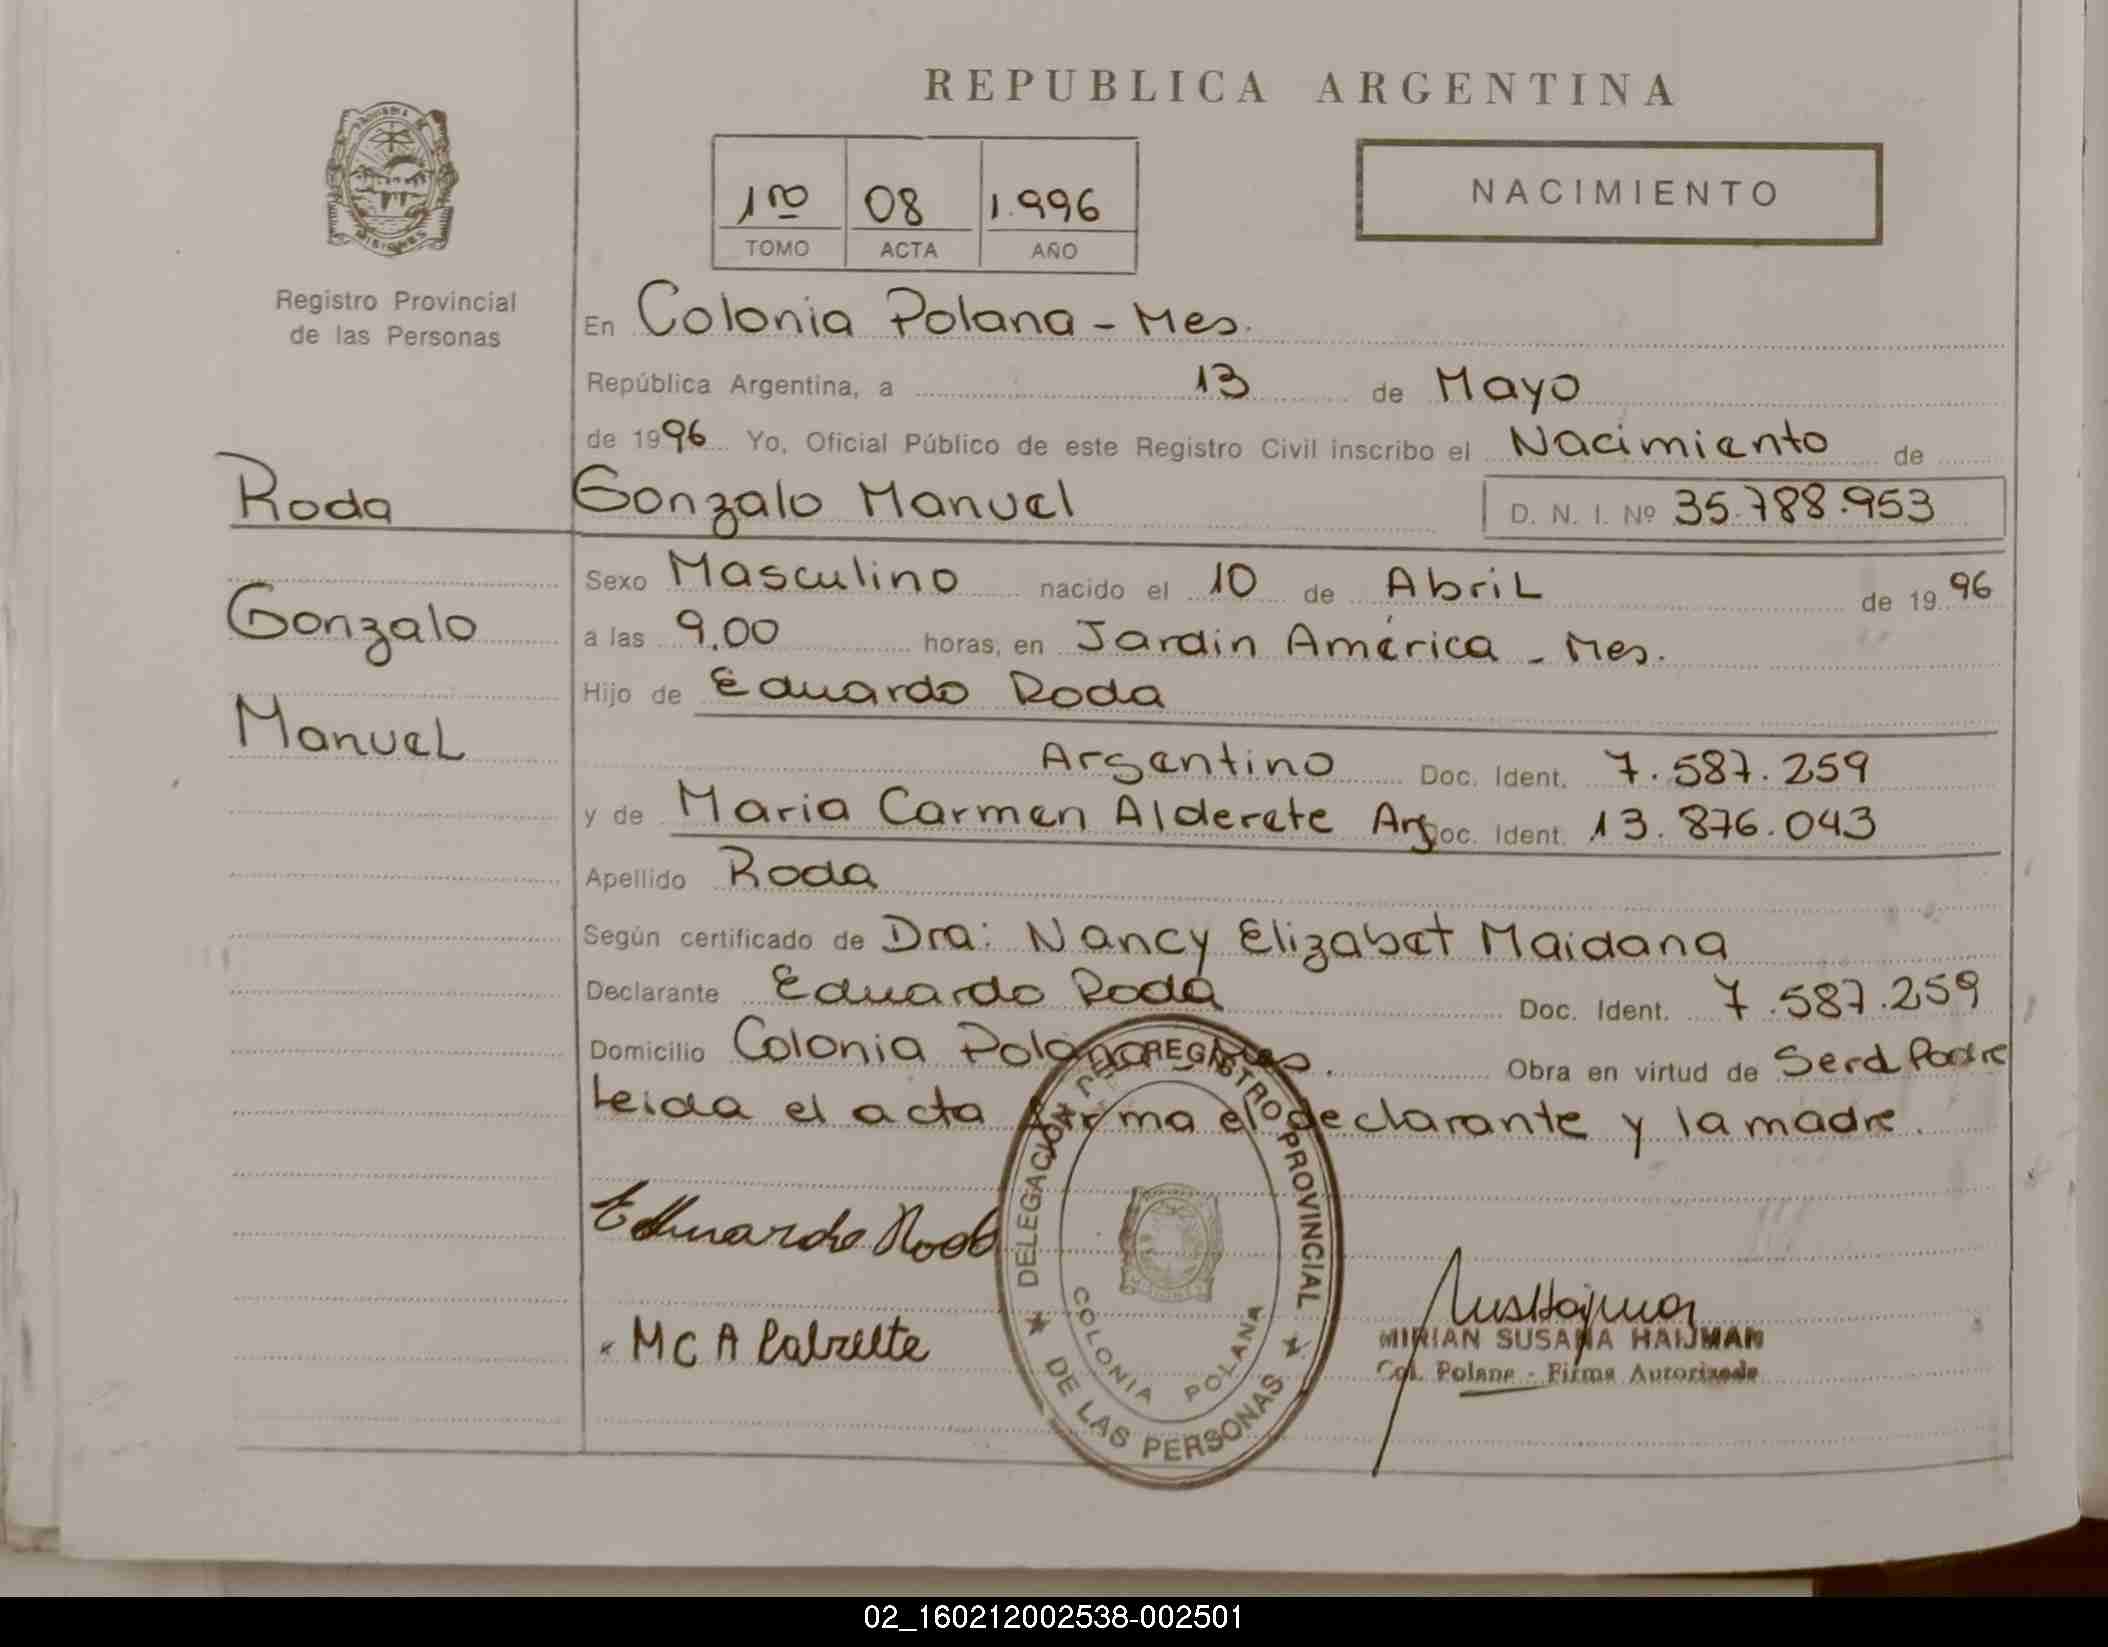 REPUBLICA ARGENTINA
1ro 08 1.996
TOMO ACTA AÑO
NACIMIENTO
Registro Provincial
de las Personas
En Colonia Polana - Mes.
República Argentina, a 13 de Mayo
de 1996 Yo, Oficial Público de este Registro Civil inscribo el Nacimiento de
Roda Gonzalo Manuel D. N. I. Nº 35.788.953
Gonzalo
Manuel
Sexo Masculino nacido el 10 de Abril de 1996
a las 9,00 horas, en Jardin América - Mes.
Hijo de Eduardo Roda
Argentino Doc. Ident. 7.587.259
y de Maria Carmen Alderete Arg Doc. Ident. 13.876.043
Apellido Roda
Según certificado de Dra: Nancy Elizabet Maidana
Declarante Eduardo Roda Doc. Ident. 7.587.259
Domicilio Colonia Polana Mes. Obra en virtud de Ser el Padre
Leida el acta firma el declarante y la madre.
Eduardo Roda
M C A
DELEGACIÓN DEL REGISTRO PROVINCIAL
DE LAS PERSONAS
COLONIA POLANA
MIRIAN SUSANA HAIJMAN
Col. Polana - Firma Autorizada
02_160212002538-002501